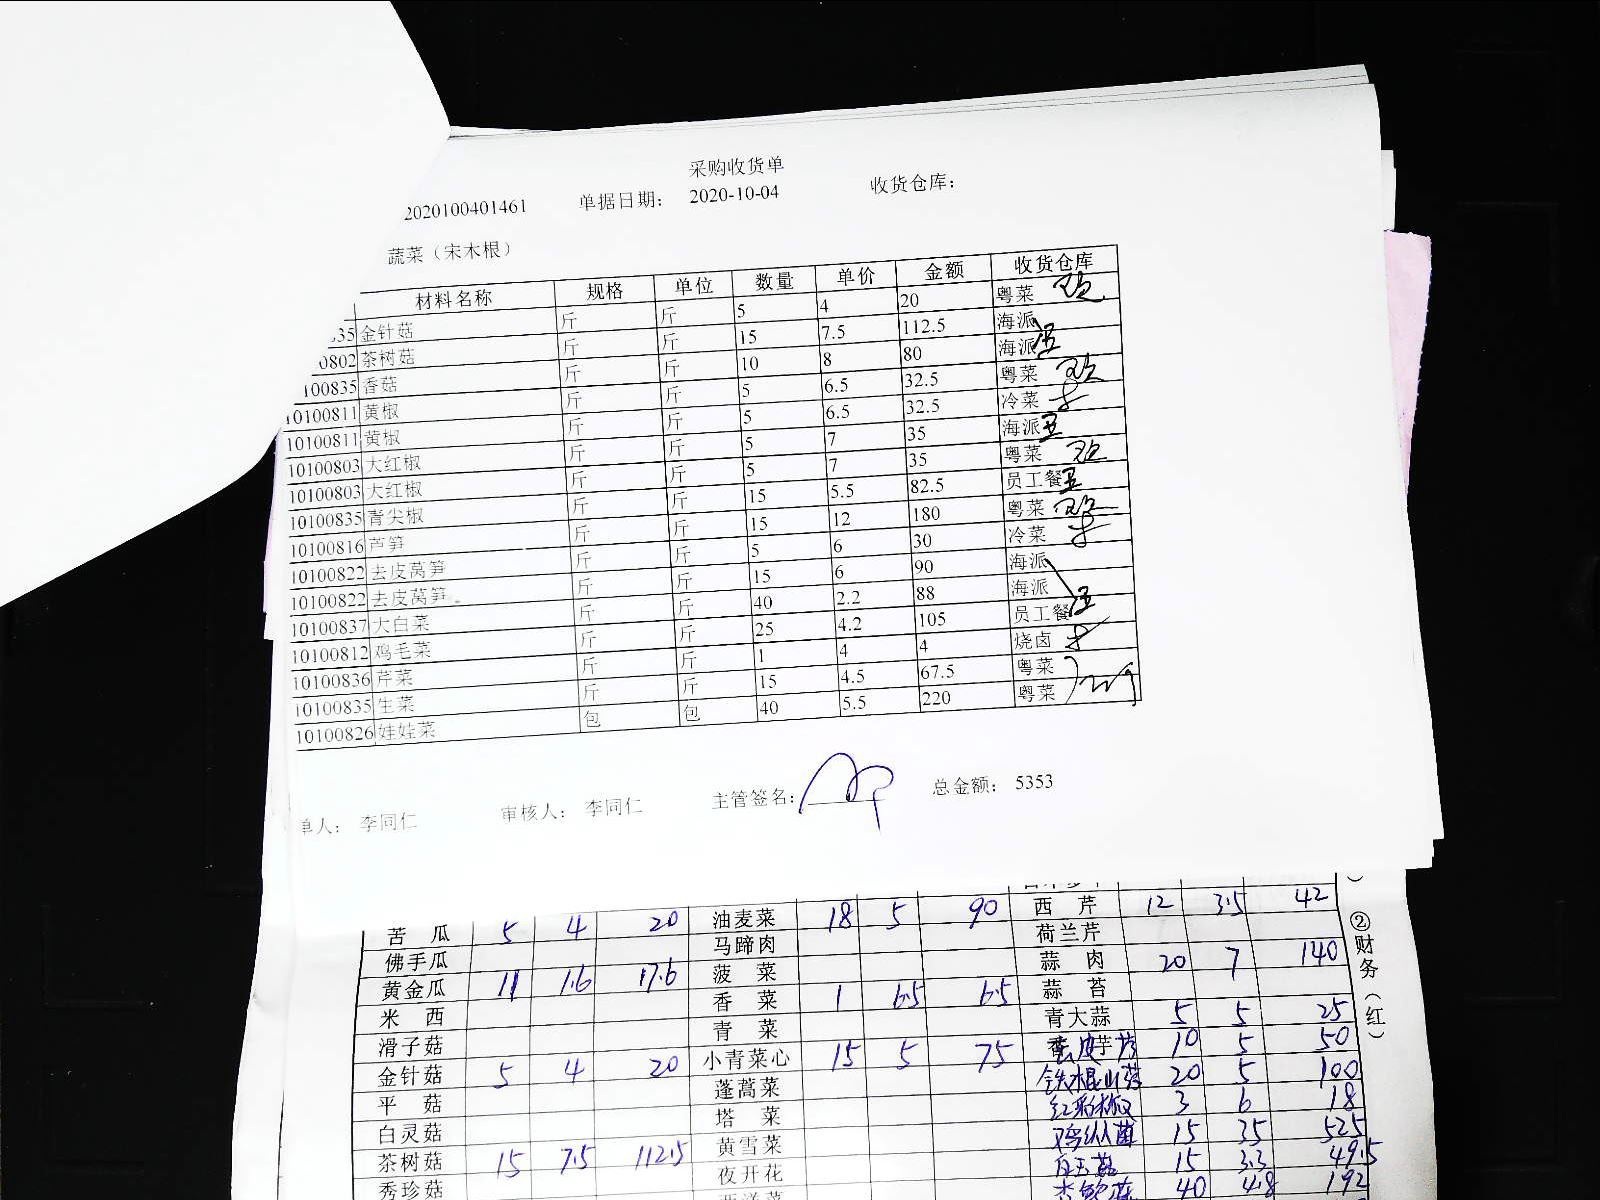 采购收货单
2020100401461 单据日期： 2020-10-04 收货仓库：
蔬菜（宋木根）
材料名称 规格 单位 数量 单价 金额 收货仓库
35 金针菇 斤 斤 5 4 20 粤菜
0802 茶树菇 斤 斤 15 7.5 112.5 海派
100835 香菇 斤 斤 10 8 80 海派
10100811 黄椒 斤 斤 5 6.5 32.5 粤菜
10100811 黄椒 斤 斤 5 6.5 32.5 冷菜
10100803 大红椒 斤 斤 5 7 35 海派
10100803 大红椒 斤 斤 5 7 35 粤菜
10100835 青尖椒 斤 斤 15 5.5 82.5 员工餐
10100816 芦笋 斤 斤 15 12 180 粤菜
10100822 去皮莴笋 斤 斤 5 6 30 冷菜
10100822 去皮莴笋 斤 斤 15 6 90 海派
10100837 大白菜 斤 斤 40 2.2 88 海派
10100812 鸡毛菜 斤 斤 25 4.2 105 员工餐
10100836 芹菜 斤 斤 1 4 4 烧卤
10100835 生菜 斤 斤 15 4.5 67.5 粤菜
10100826 娃娃菜 包 包 40 5.5 220 粤菜
单人： 李同仁 审核人： 李同仁 主管签名： 总金额： 5353
苦瓜 5 4 20 油麦菜 18 5 90 西芹 12 3.5 42
佛手瓜 马蹄肉 荷兰芹
黄金瓜 11 1.6 17.6 菠菜 蒜肉 20 7 140
米西 香菜 1 6.5 6.5 蒜苔
滑子菇 青菜 青大蒜 5 5 25
金针菇 5 4 20 小青菜心 15 5 75 10 5 50
平菇 蓬蒿菜 铁棍山药 20 5 100
白灵菇 塔菜 3 6 18
茶树菇 15 7.5 112.5 黄雪菜 鸡纵菌 15 35 525
秀珍菇 夜开花 白玉菇 15 3.3 49.5
40 4.8 192
②财务（红）